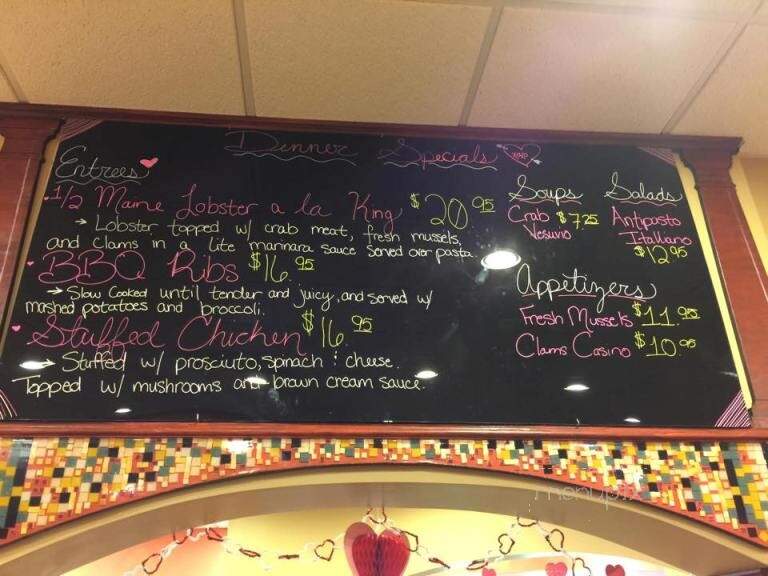 Dinner Specials
Entrees
1/2 Maine Lobster a la King $20.95
→ Lobster topped w/ crab meat, fresh mussels,
and clams in a lite marinara sauce served over pasta.
BBQ Ribs $16.95
→ Slow Cooked until tender and juicy, and served w/
mashed potatoes and broccoli.
Stuffed Chicken $16.95
→ Stuffed w/ prosciuto, spinach & cheese.
Topped w/ mushrooms and brown cream sauce.
Soups
Crab $7.25
Vesuvio
Salads
Antipasto
Italiano
$12.95
Appetizers
Fresh Mussels $11.95
Clams Casino $10.95
menupix